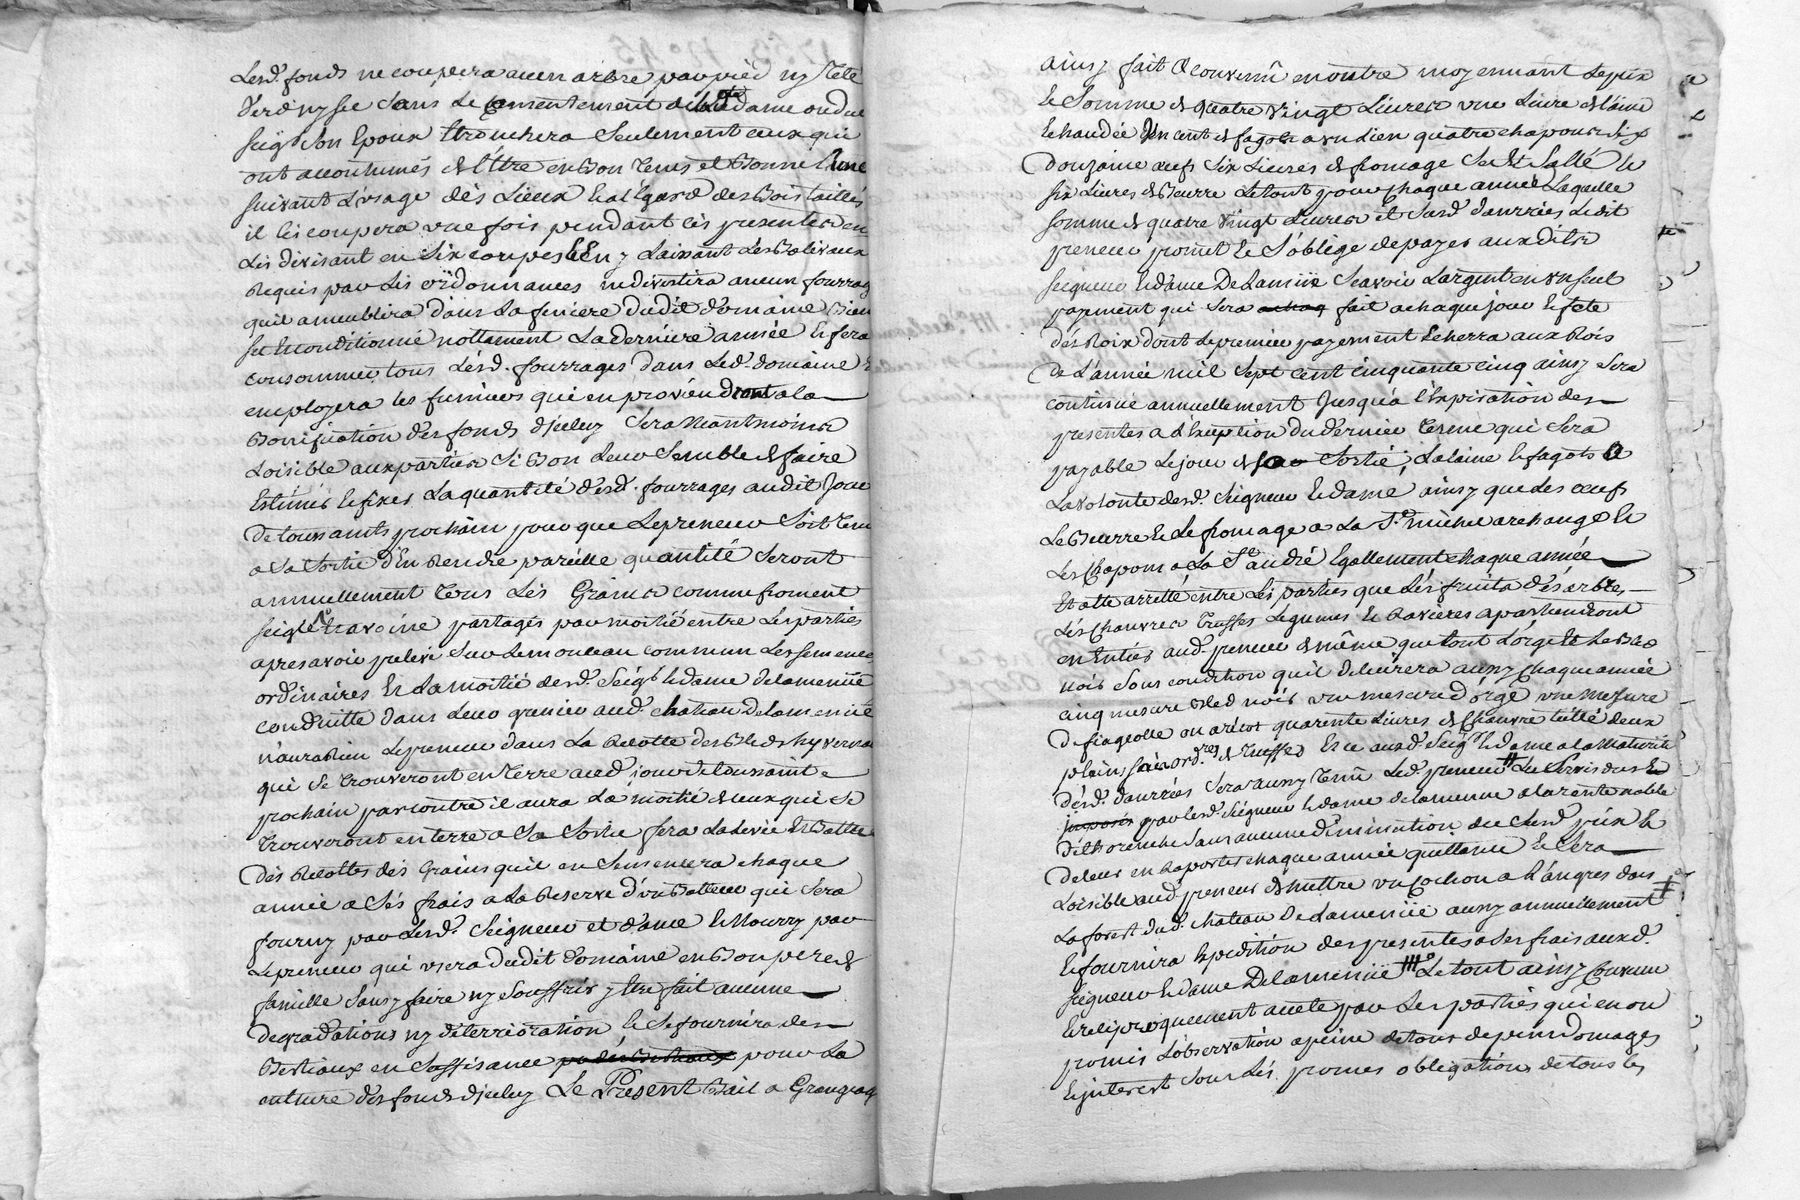 Lesd.s fonds ne coupera aucun arbre par pied ny Tete
Verd ny sec sans Le Consentement de lad.te Dame ou du
seig.r Son Epoux Etronchera Seulement ceux qui
ont accoutumés de l'Etre en Bon Tems et Bonne Lune
suivant L'usage dès Lieux Et a l'Egard des Bois taillés
il Les coupera une fois pendant les presentes en
Les divisant en Six coupes et En y Laissant Les Balivaux
Requis par Les ordonnances ne divertira aucun fourrag
quil ameublira dans La feniere dudit domaine Bien
sec Et conditionné nottament La derniere année Et fera
consommer tous Lesd. fourrages dans Led. domaine Et
employera les fumiers qui en proviendront a la
Bonification des fonds d'jceluy Sera Neantmoins
Loisible aux parties Si Bon Leur Semble de faire
Estimer Et fixer La quantité desd. fourrages audit Jour
De toussaints prochain pour que Le preneur Soit Tenu
a Sa Sortie d'En Rendre pareille quantité Seront
annuellement Tous Les Grains comme froment
seigle Et avoine partagés par moitié entre Les parties
apres avoir prelevé Sur Le monceau commun Les semences
ordinaires Et La moitié desd. Seig.r Et dame Delamenüe
conduitte dans Leur grenier aud. chateau Delamenüe
n'aura Rien Le preneur dans La Recolte des Bleds hyvernau
qui Se trouveront en Terre aud. jour de Toussaint
prochain par contre il aura La moitié de ceux qui Se
trouveront en terre a Sa Sortie fera La Levée Et Battre
Des Recoltes des Grains quil en Semencera chaque
année a Sés frais a La Reserve d'un Batteur qui Sera
fourny par Lesd. Seigneur et dame Et Nourry par
Le preneur qui usera dudit domaine en Bon pere de
famille Sans y faire ny Souffrir y Etre fait aucune
degradations ny déterrioration Et Se fournira des
Bestiaux en Suffisance pour La
culture des fonds d'jceluy Le Present Bail a Grangeag
ainsy fait Et convenû en outre moyennant Le prix
Et Somme de quatre vingt Livres une Livre de Laine
Echaudée Un cent de fagots a un Lien quatre chapons Six
Douzaine œufs Six Livres de fromage Sec Et Sallé Et
six Livres de Beurre Le tout pour chaque année Laquelle
somme de quatre vingt Livres et Susd. danrrées Ledit
preneur promet Et S'oblige de payer auxdits
seigneur Et dame Delamenüe Scavoir L'argent en un Seul
payement qui Sera fait a chaque jour Et fete
des Roix dont Le premier payement Echerra aux Rois
De L'année mil Sept cent cinquante cinq ainsy Sera
continué annuellement Jusqu'a l'Expiration des
presentes a L'Exception du dernier Terme qui Sera
payable Le jour de Sa Sortie, La laine Et fagots a
La volonté desd. Seigneur Et dame ainsy que Les œufs
Le Beurre Et Le fromage a La S.t michel archange Et
Les Chapons a La S.t andré Egallement chaque année
Et a Ete arretté entre Les parties que Les fruits des arbres
Les Chanvres Truffes Legumes Et Ravieres apartiendront
en Entier aud. preneur de même que tout L'orge Et Le Bled
noir Sous condition quil delivrera aussy Chaque année
cinq mesure Bled noir une mesure d'orge une mesure
De fiageolle ou aricot quarente Livres de Chanvre tellé deux
pleins Sacs ord.res de Truffes Et ce auxd. Seig.r Et dame a la Maturité
desd. danrrées Sera aussy Tenû Led. preneur # Les Servis dus Et
par lesd. Seigneur Et dame Delamenüe a la rente noble
Sans aucune diminution du Susd. prix Et
De Leur en Raporter chaque année quittance Et Sera
Loisible aud. preneur de mettre un Cochon a L'angres dans #
La forest dud. chateau De Lamenüe aussy annuellement
Et fournira Expedition des presentes a Ses frais auxd.
seigneur Et dame Delamenüe Le tout ainsy Convenu
Et reciproquement accepté par Les parties qui en ont
promis L'observation a peine de tous depens domages
Et jnterest Sous Les promes obligations de tous les